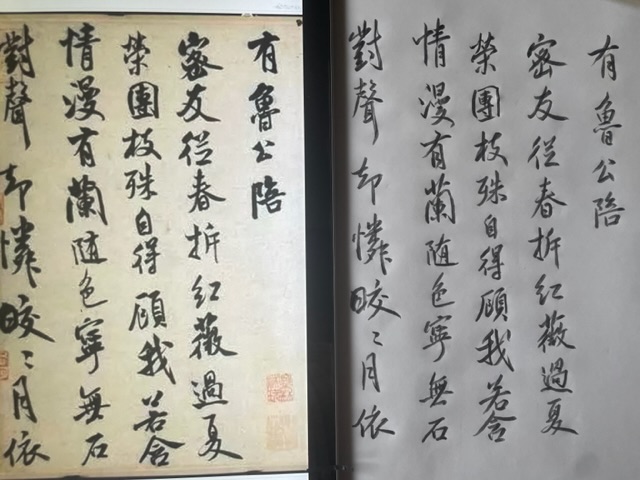 有魯公陪
密友從春拆紅薇過夏
榮團枝殊自得顧我若含
情漫有蘭隨色寧無石
對聲却憐皎〻月依
有魯公陪
密友從春拆紅薇過夏
榮團枝殊自得顧我若含
情漫有蘭隨色寧無石
對聲却憐皎〻月依